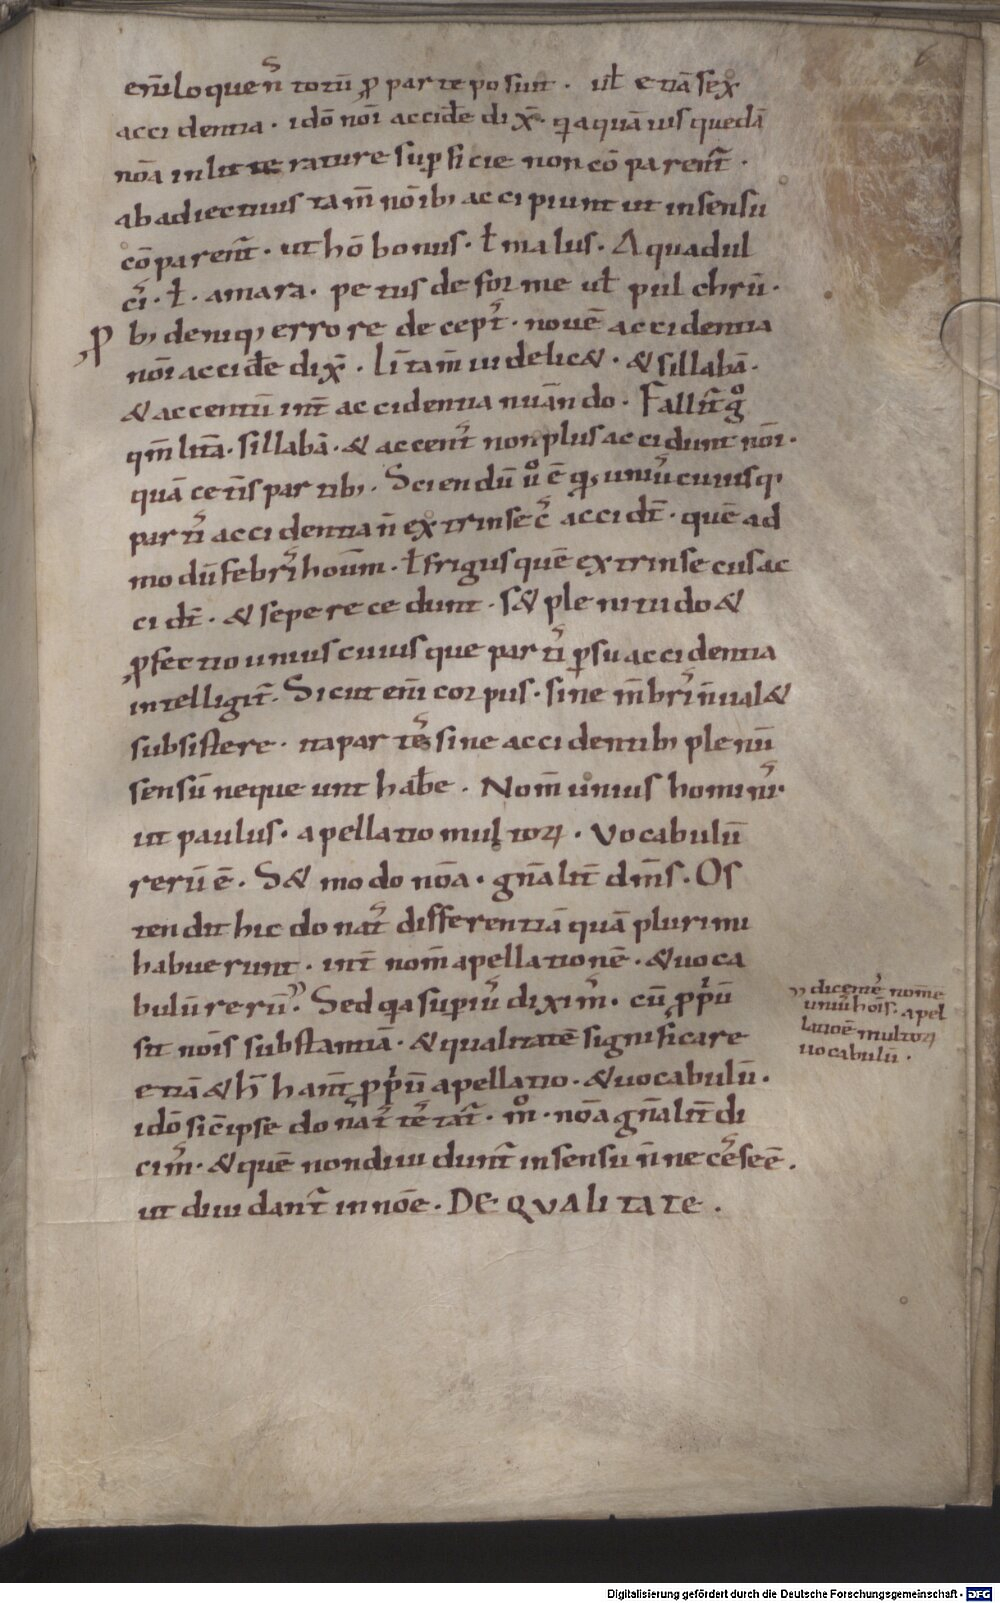 6
eni͞loquen᷒s totū ꝓ parte posunt. ul̄ etiā sex
accidentia. idō noi᷒ accide̅ dix̄. qͥa quāuis quedā
nōa in litterature sup̱ficie non cōparent᷒.
ab adiectiuis tam̄ nōib; accipiunt ut in sensu
cōparent᷒. ut hō bonus. ł malus. Aqua dul
ci᷒s. ł. amara. petus deforme ul̄ pulchrū.
ꝓb; deniq; errore decept᷒. nouē accidentia
nōi accide̅ dix̄. lr̄am uidelic&. & sillabā.
& accentū int̄ accidentia nūando. Fallit᷒ gͦ
qm̄ litā. sillabā. & accent᷒ non plus accidunt nōi.
quā cet̄is partib;. Sciendū uͦ ē qd̵ uni᷒cuiusq;
parti᷒ accidentia n̄ extrinsec᷒ accid̄t. quē ad
modū febri᷒ houm̄. ł frigus quē extrinsecus ac
cid̄t. & sepe recedunt. s& plenitudo &
ꝑfectio uniuscuiusque parti᷒ ꝑ su accidentia
intelligit᷒. Sicut eni̅ corpus. sine m̄bri᷒ n̄ ual&
subsistere. ita parte᷒s sine accidentib; plenū
sensū nequeunt habe̅. Nom̄ unius homini᷒.
ut paulus. apellatio multoꝝ. Vocabulū
rerū ē. S& modo nōa. gn̄alit̄ dm̄s. Os
tendit hic donat᷒ differentiā quā plurimi
habuerunt. int̄ nom̄ apellationē. & uoca
bulū rerū. Sed qͥa superi᷒ diximꝰ. cū ꝓpͥū
sit nōis substantiā. & qualitatē significare
etiā & h̄ han̄t ꝓpͥū apellatio. & uocabulū.
idō sic̄ ipse donat᷒ te᷒tat᷒. mͦ. nōa gn̄alit̄ di
cimꝰ. & quē non diuidunt᷒ in sensu n̄ nece᷒se ē.
ut diuidant᷒ in nōe. DE QVALITATE.
dicem᷒ nom̄e
uni᷒ hōis. apel
lationē multoꝝ
uocabulū.
Digitalisierung gefördert durch die Deutsche Forschungsgemeinschaft - DFG